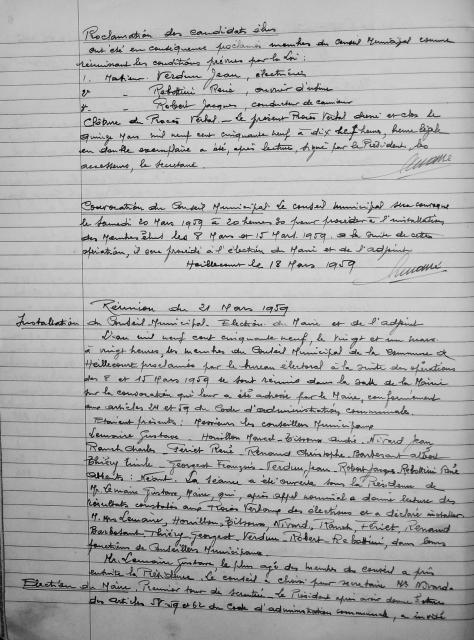 Proclamation des candidats élus
ont été en conséquence proclamés membres du Conseil Municipal comme
réunissant les conditions prévues par la loi :
1. Messieurs. Verdun Jean, électricien
2° - Robottini René, ouvrier d'usine
3. - Robert Jacques, conducteur de camion
Clôture du Procès Verbal - le présent Procès Verbal dressé et clos le
quinze Mars mil neuf cent cinquante neuf à dix heures, heure légale
en double exemplaire a été, après lecture, signé par le Président, les
assesseurs, le secrétaire.
Convocation du Conseil Municipal le conseil municipal sera convoqué
le samedi 20 Mars 1959 à 20 heures 30 pour procéder à l'installation
des Membres élus les 8 Mars et 15 Mars 1959. à la suite de cette
opération, il sera procédé à l'élection du Maire et de l'adjoint
Haillecourt le 18 Mars 1959
Réunion du 21 Mars 1959
Installation du Conseil Municipal. Election du Maire et de l'adjoint
L'an mil neuf cent cinquante neuf, le vingt et un mars
à vingt heures, les membres du Conseil Municipal de la Commune de
Haillecourt proclamés par le bureau électoral à la suite des opérations
des 8 et 15 Mars 1959 se sont réunis dans la salle de la Mairie
sur la convocation qui leur a été adressée par le Maire, conformément
aux articles 21 et 59 du Code d'administration communale.
Etaient présents : Messieurs les conseillers Municipaux
Lemaire Gustave - Houillon Marcel - Bissous André - Nivard Jean
Ranch Charles - Fériet René - Renaud Christophe - Barbesant Alfred
Thiéry Emile - Georgeot François - Verdun Jean, Robert Jacques, Robottini René
Absents : Néant. La séance a été ouverte sous la Présidence de
Mr. Lemaire Gustave, Maire, qui, après appel nominal a donné lecture des
résultats constatés aux Procès Verbaux des elections et a déclaré installer
M. Mrs Lemaire, Houillon, Bissous, Nivard, Ranch, Fériet, Renaud
Barbesant Thiéry, Georgeot, Verdun, Robert, Robottini, dans leurs
fonctions de Conseillers Municipaux.
Mr. Lemaire Gustave le plus âgé des membres du conseil a pris
ensuite la Présidence. Le conseil a choisi pour secrétaire Mr Nivard.
Election du Maire, Premier tour de scrutin. Le Président après avoir donné lecture
des Articles 58, 59 et 62 du Code d'administration communale, a invité